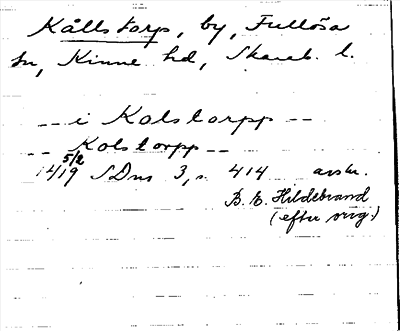 Källstorp, by, Fullösa
sn, Kinne hd, Skarab. l.
-- i Kolstorpp --
-- Kolstorpp --
5/2
1419 SDns 3, s. 414 avskr.
B. E. Hildebrand
(efter orig.)